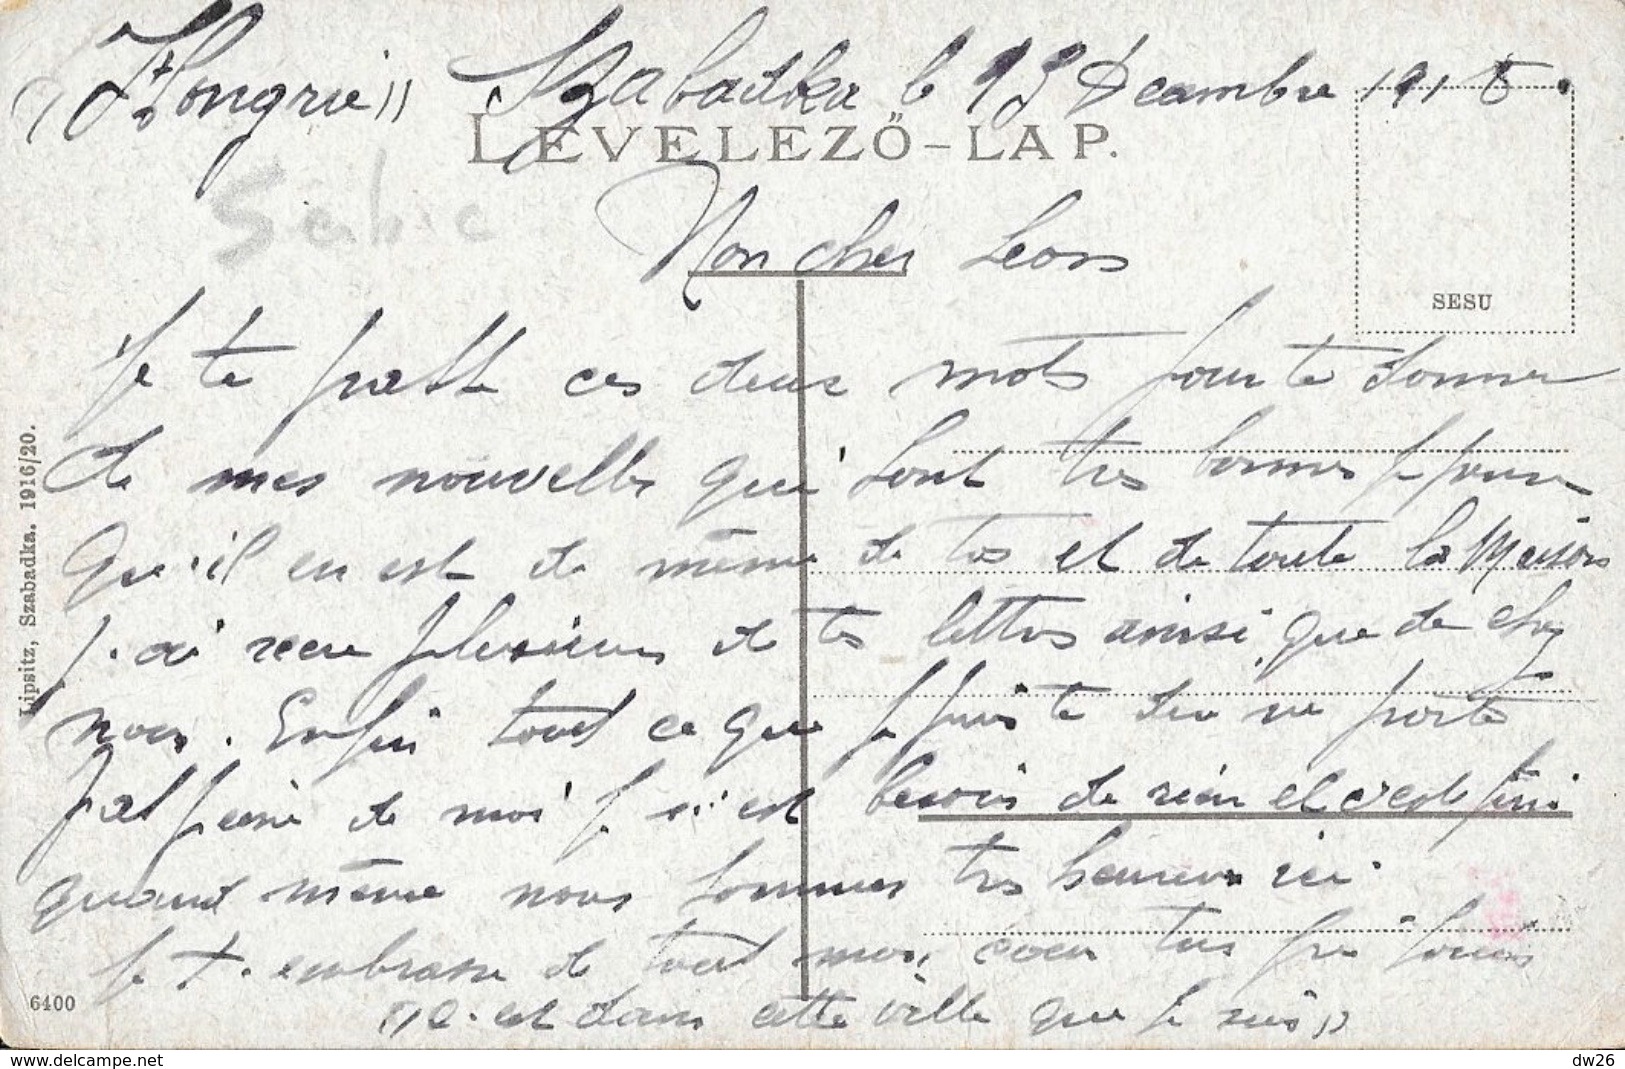 (Hongrie)) Szabadka le 13 Décembre 1918.
LEVELEZŐ-LAP.
Serbie
Mon cher Leon
SESU
Je te ces deux mots pour te donner
de mes nouvelles qui sont tres bonnes je pense
Que il en est de même de toi et de toute la Maison
J. ai recu plusieurs de tes lettres ainsi que de chez
nous. Enfin tout ce que je puis te dire ne porte
pas peine de moi je n'est besoin de rien et c'est fini
quand même nous sommes tres heureux ici
Je t. embrasse de tout mon coeur ton
((c. est dans cette ville que je suis))
Lipsitz, Szabadka. 1916/20.
6400
dw26